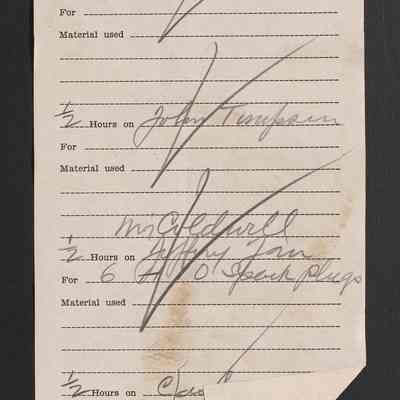 For
Material used
1/2 Hours on John Timpson
For
Material used
Mr Coldwell
1/2 Hours on
For 6 A O Spark Plugs
Material used
1/2 Hours on